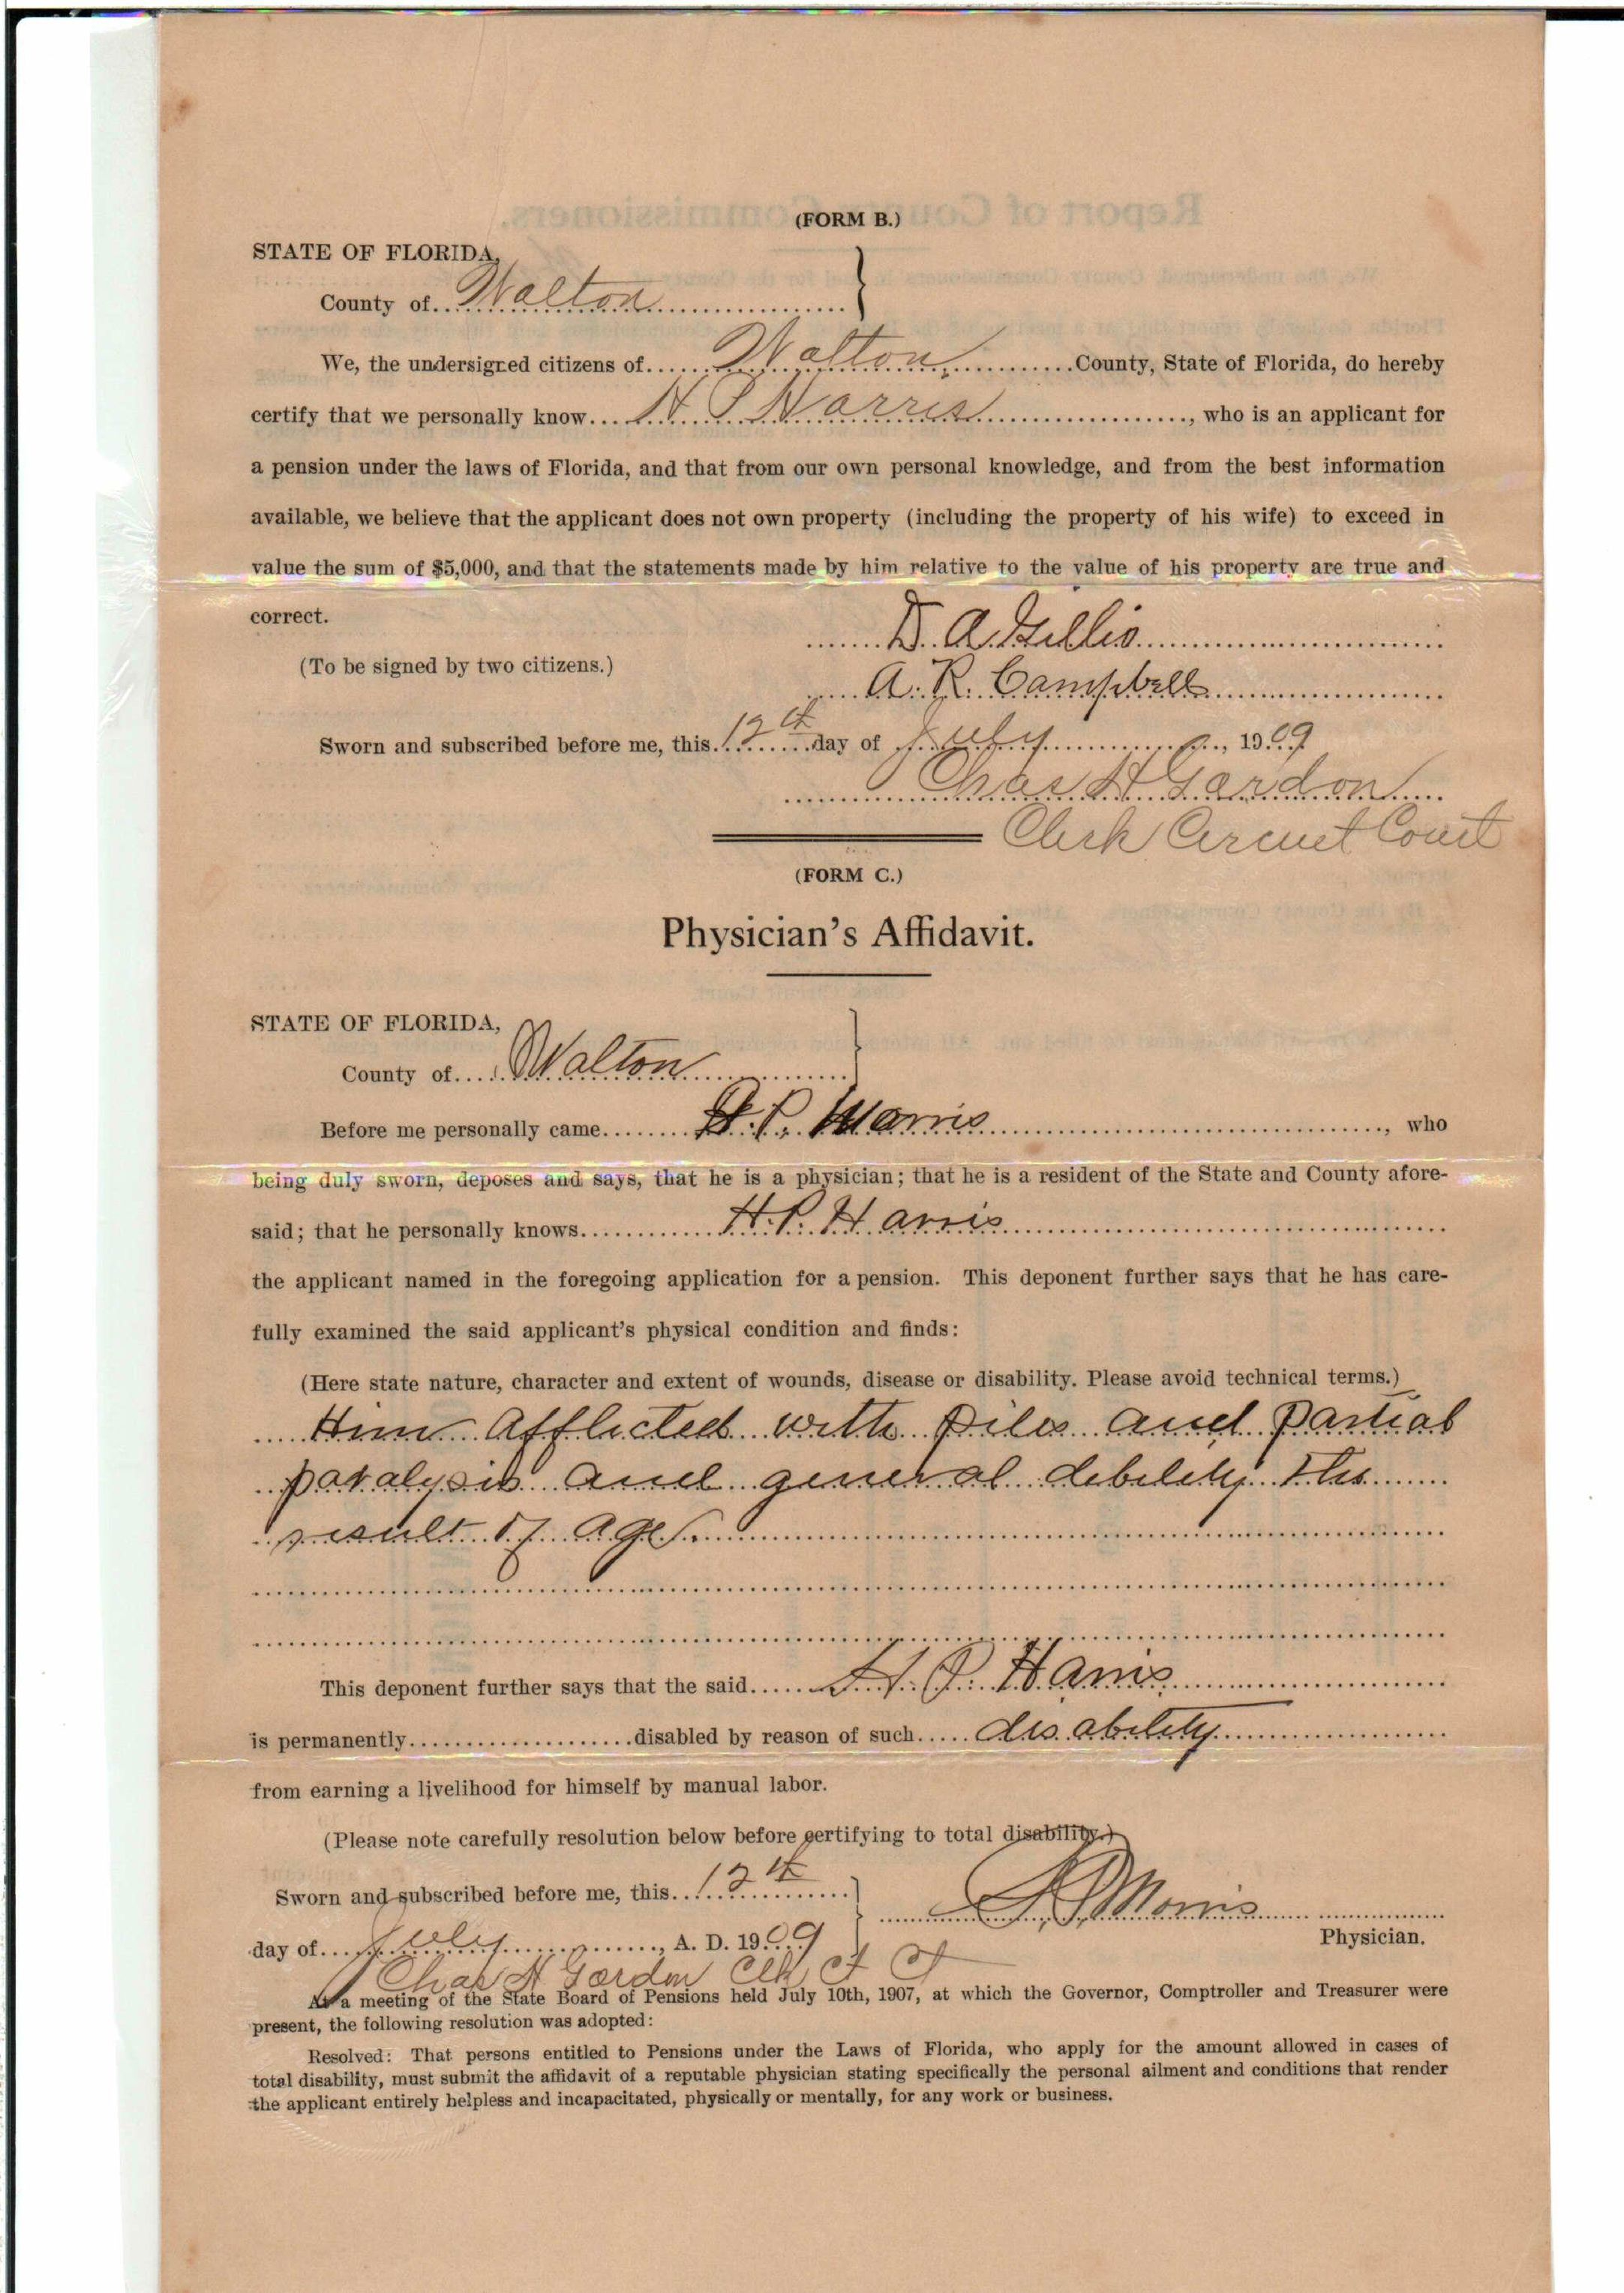 (FORM B.)
STATE OF FLORIDA,
County of Walton
We, the undersigned citizens of Walton County, State of Florida, do hereby
certify that we personally know H P Harris, who is an applicant for
a pension under the laws of Florida, and that from our own personal knowledge, and from the best information
available, we believe that the applicant does not own property (including the property of his wife) to exceed in
value the sum of $5,000, and that the statements made by him relative to the value of his property are true and
correct.
D. A. Gillis
(To be signed by two citizens.)
A. R. Campbell
Sworn and subscribed before me, this 12th day of July, 1909
Chas H Gordon
Clerk Circuit Court
(FORM C.)
Physician's Affidavit.
STATE OF FLORIDA,
County of Walton
Before me personally came P. Morris, who
being duly sworn, deposes and says, that he is a physician; that he is a resident of the State and County afore-
said; that he personally knows H. P. Harris
the applicant named in the foregoing application for a pension. This deponent further says that he has care-
fully examined the said applicant's physical condition and finds:
(Here state nature, character and extent of wounds, disease or disability. Please avoid technical terms.)
Him Afflicted with piles and partial
paralysis and general debility the
result of age
This deponent further says that the said H. P. Harris
is permanently disabled by reason of such disability
from earning a livelihood for himself by manual labor.
(Please note carefully resolution below before certifying to total disability.)
Sworn and subscribed before me, this 12th
Morris
day of July, A. D. 1909
Physician.
Chas H Gordon Clk Ct Ct
At a meeting of the State Board of Pensions held July 10th, 1907, at which the Governor, Comptroller and Treasurer were
present, the following resolution was adopted:
Resolved: That persons entitled to Pensions under the Laws of Florida, who apply for the amount allowed in cases of
total disability, must submit the affidavit of a reputable physician stating specifically the personal ailment and conditions that render
the applicant entirely helpless and incapacitated, physically or mentally, for any work or business.